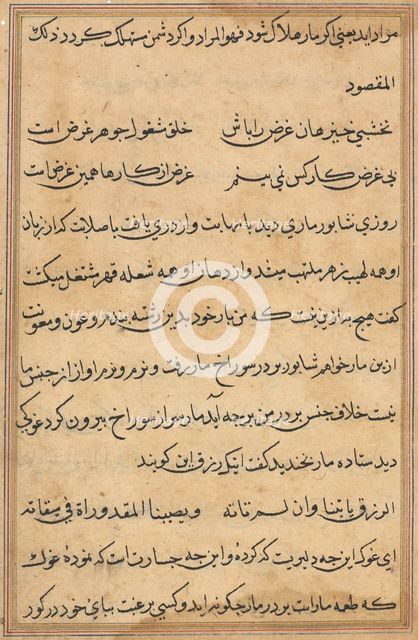 مراد اید یعنی اکر مار هلاک شود فهو المراد و اکر دشمن مستهلک کردد ذلک
المقصود
نخشبی خیز هان غرض را باش خلق مشغول جوهر غرض است
بی غرض کار کس نمی بینم غرض از کارها همین غرض است
روزی شابور ماری دید با مهابت و اژدری یافت با صلابت که از زبان
او همه لهیب زهر ملتهب میشد و از دهان او همه شعله قهر مشتعل میکشت
کفت هیچ به ازین نیست که من یار خود بدین رشته بندم و عون و معونت
ازین مار خواهم شابور بر در سوراخ مار رفت و نرم نرم اواز از جنس ما
نیست خلاف جنس بر در من بر چه آید مار سر از سوراخ بیرون کرد غوکی
دید ستاده مار بخندید کفت اینک رزق این کویند
الرزق یاتینا وان لم تاته ویصیبنا المقدور فی میقاته
ای غوک این چه دلیریست که کردهٔ و این چه جسارت است که نمودهٔ غوک
که طعمه مار است بر در مار چکونه اید و کسی برغبت بپای خود در کور